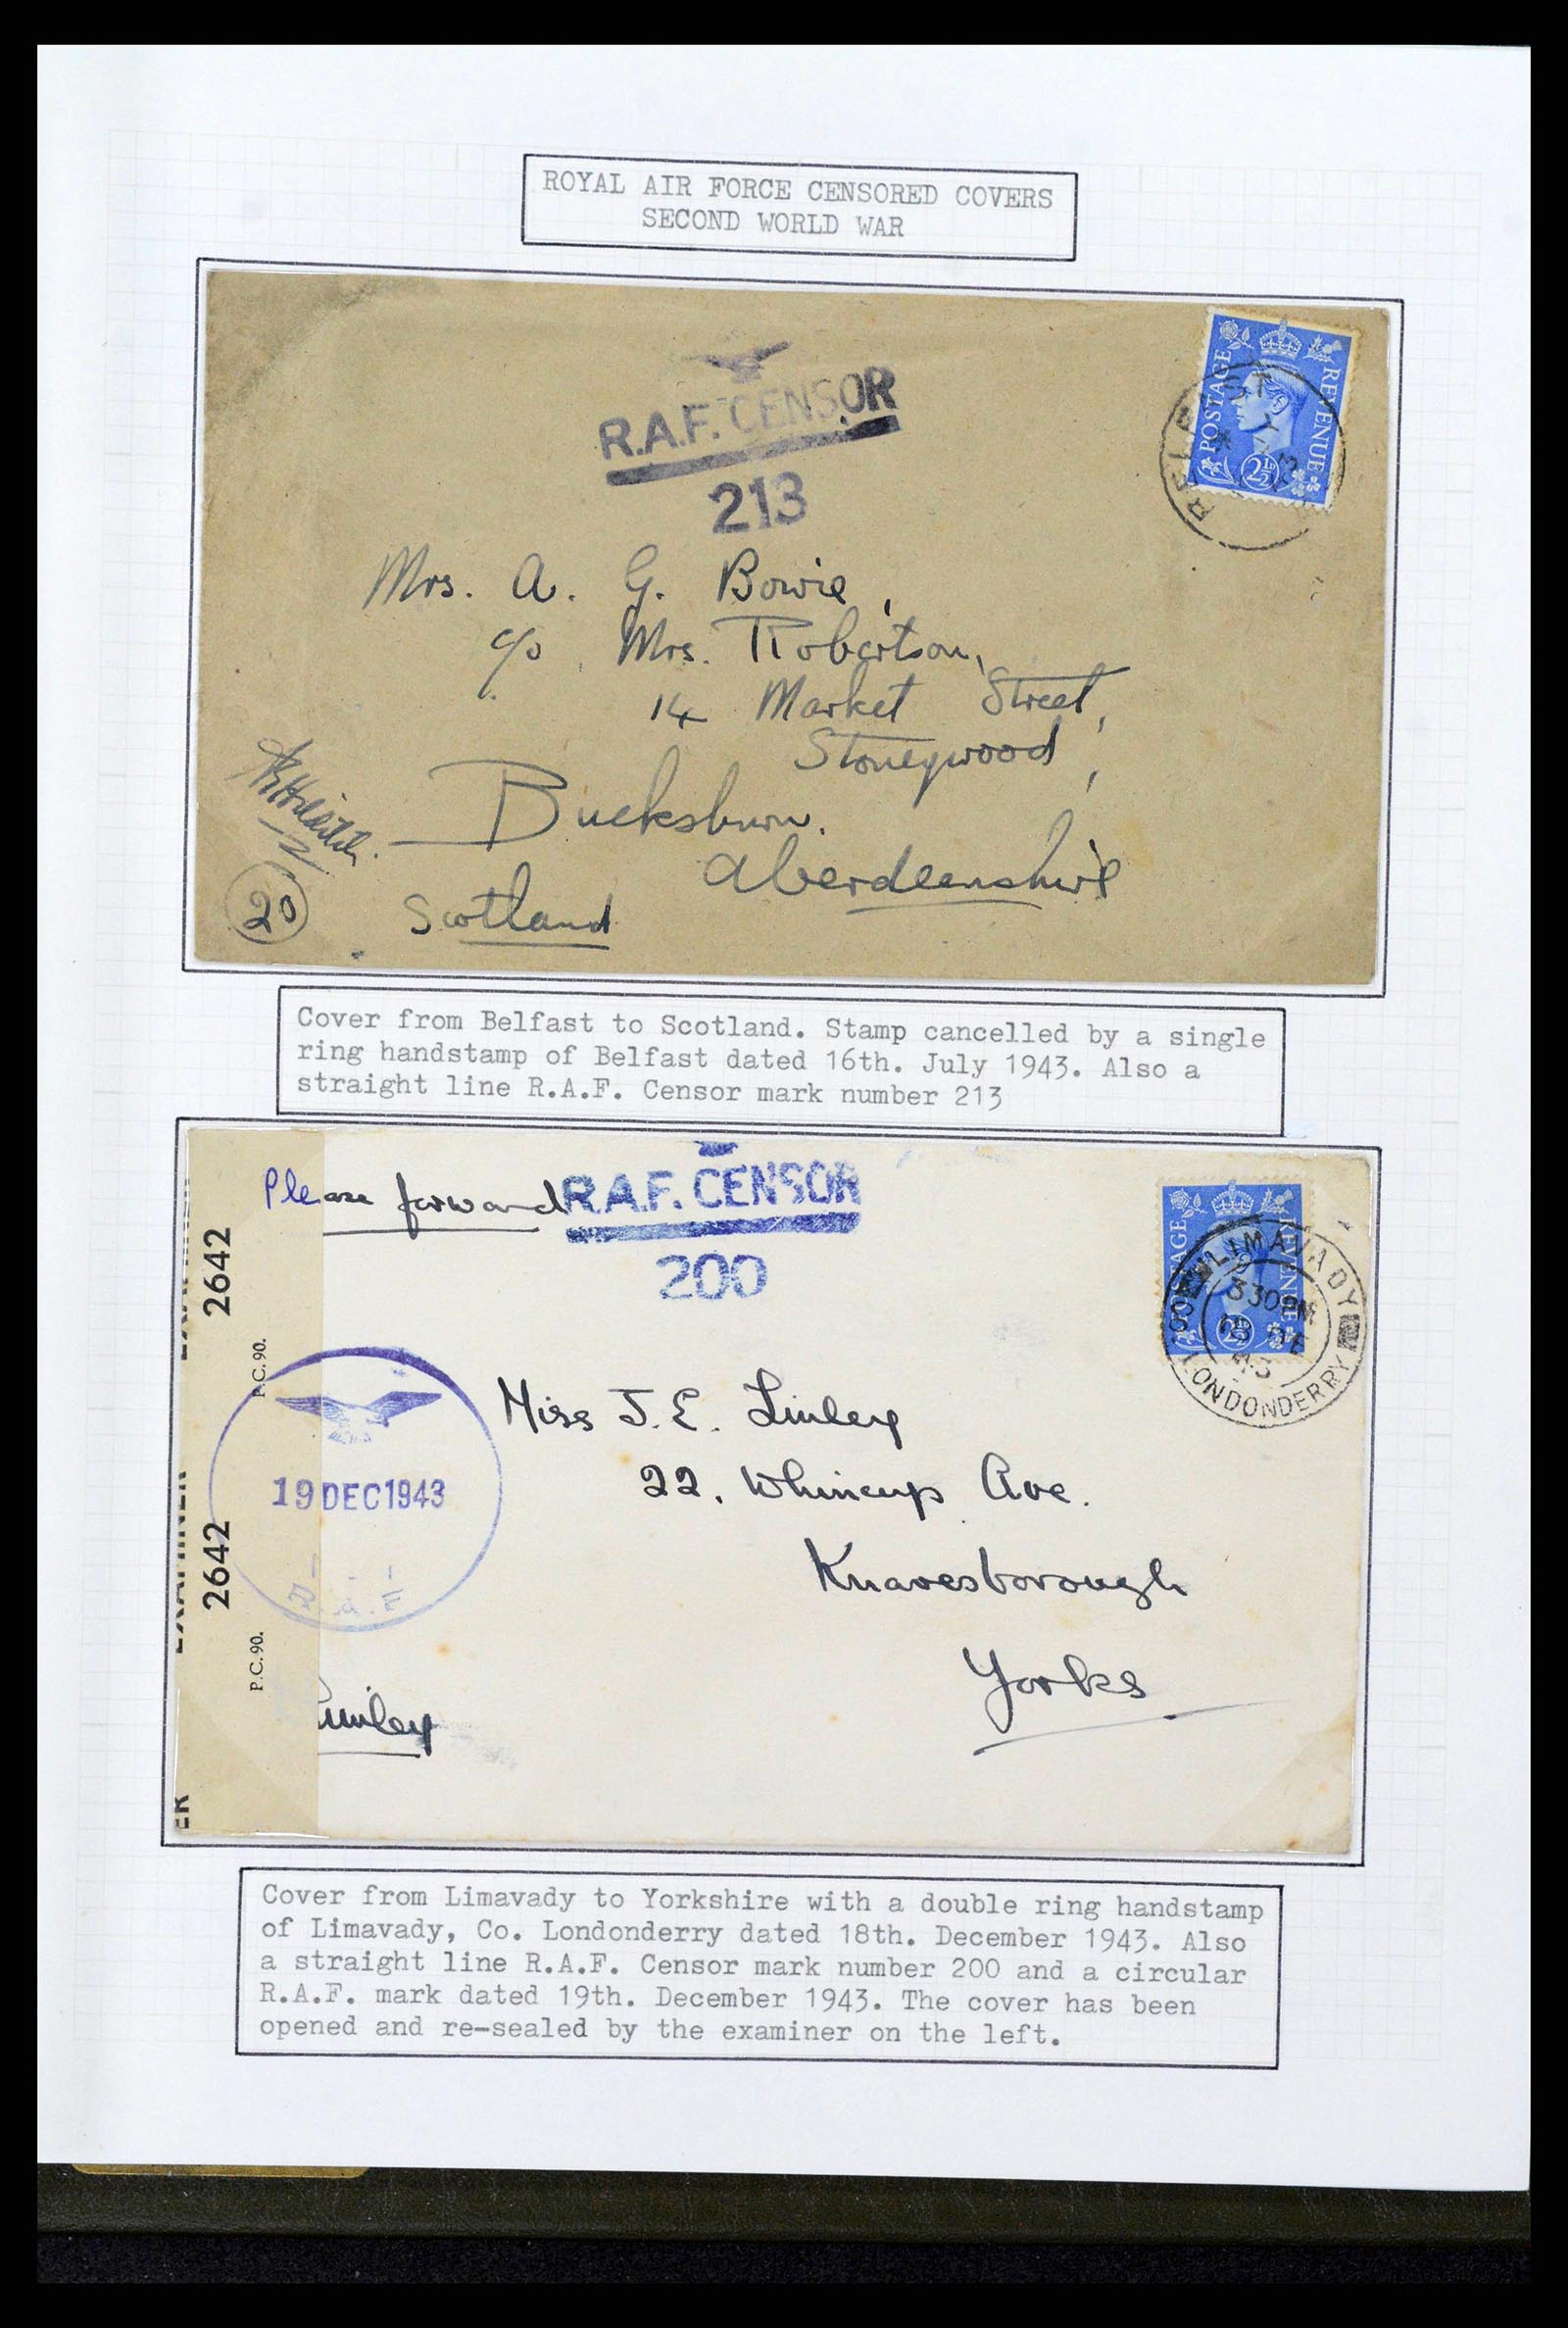 ROYAL AIR FORCE CENSORED COVERS
SECOND WORLD WAR
POSTAGE REVENUE
2½D
R.A.F. CENSOR
213
Mrs. A. G. Bowie,
c/o Mrs. Robertson,
14 Market Street,
Stoneywood,
Bucksburn.
Aberdeenshire
Scotland
20
Cover from Belfast to Scotland. Stamp cancelled by a single
ring handstamp of Belfast dated 16th. July 1943. Also a
straight line R.A.F. Censor mark number 213
Please forward
R.A.F. CENSOR
200
REVENUE
LIMAVADY
3 30 PM
18 DE
43
CO. LONDONDERRY
EXAMINER
2642
P.C. 90.
2642
P.C. 90.
ER
19 DEC 1943
R.A.F
Miss J. E. Linley
22, Whincup Ave.
Knaresborough
Yorks
Linley
Cover from Limavady to Yorkshire with a double ring handstamp
of Limavady, Co. Londonderry dated 18th. December 1943. Also
a straight line R.A.F. Censor mark number 200 and a circular
R.A.F. mark dated 19th. December 1943. The cover has been
opened and re-sealed by the examiner on the left.